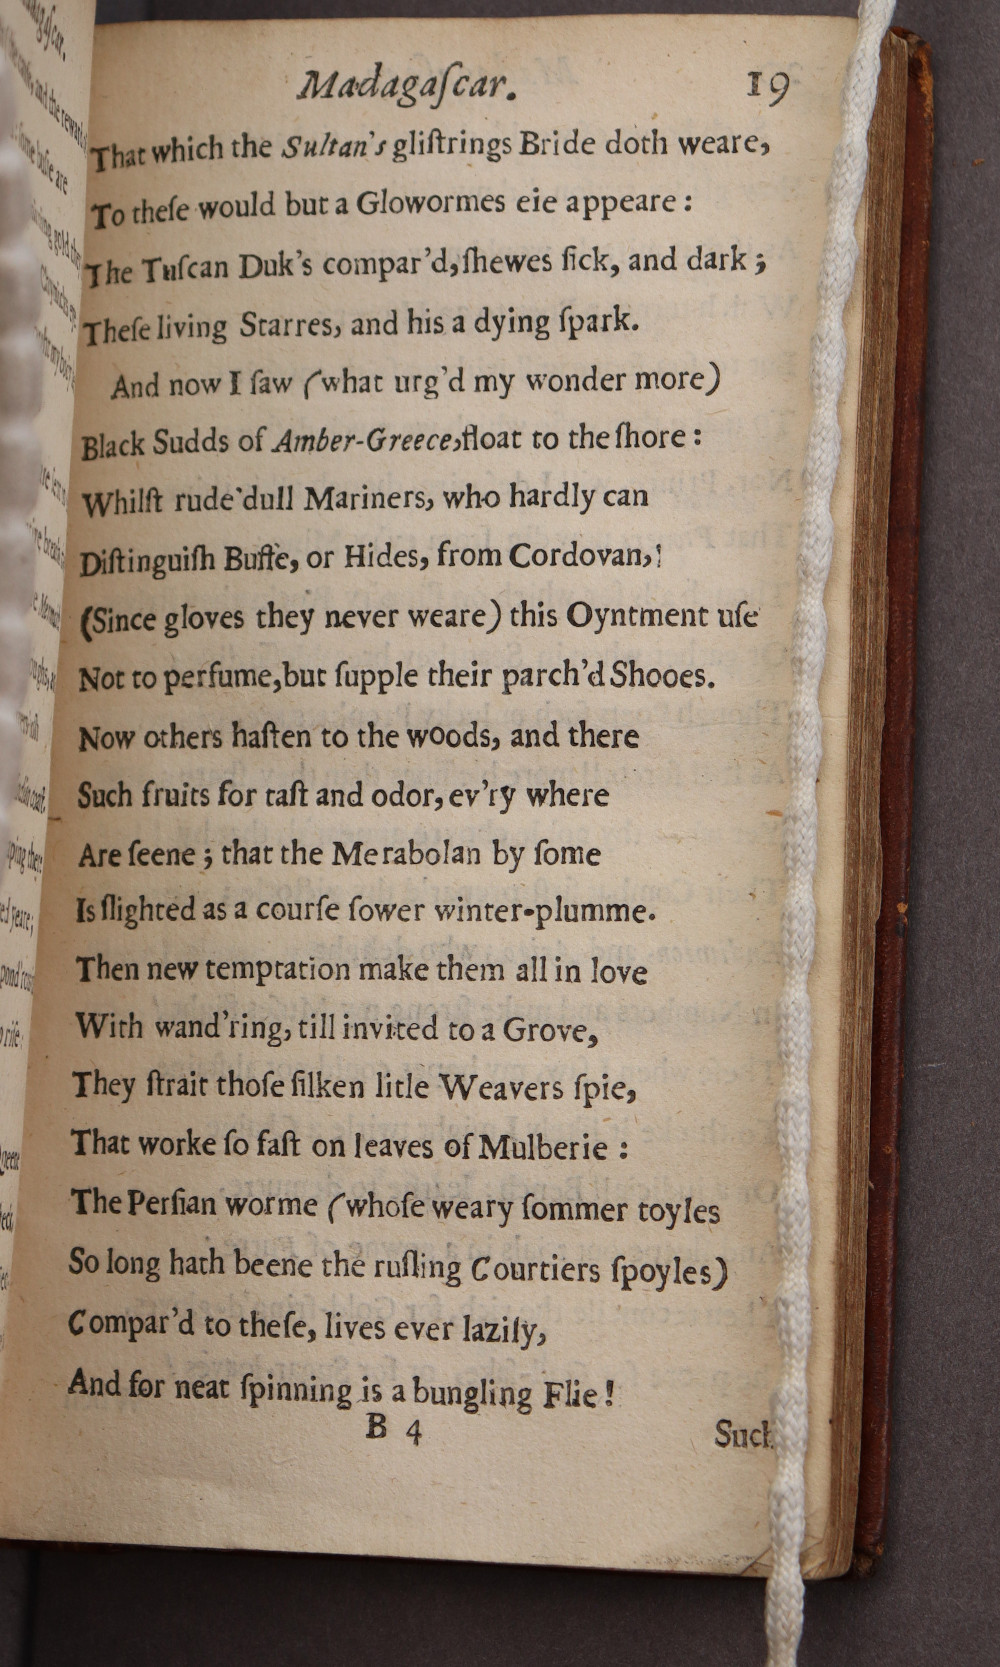 Madagaſcar. 19
That which the Sultan's gliſtrings Bride doth weare,
To theſe would but a Glowormes eie appeare :
The Tuſcan Duk's compar'd, ſhewes ſick, and dark ;
Theſe living Starres, and his a dying ſpark.
And now I ſaw (what urg'd my wonder more)
Black Sudds of Amber-Greece, float to the ſhore :
Whilſt rude dull Mariners, who hardly can
Diſtinguiſh Buffe, or Hides, from Cordovan,!
(Since gloves they never weare) this Oyntment uſe
Not to perfume, but ſupple their parch'd Shooes.
Now others haſten to the woods, and there
Such fruits for taſt and odor, ev'ry where
Are ſeene ; that the Merabolan by ſome
Is ſlighted as a courſe ſower winter-plumme.
Then new temptation make them all in love
With wand'ring, till invited to a Grove,
They ſtrait thoſe ſilken litle Weavers ſpie,
That worke ſo faſt on leaves of Mulberie :
The Perſian worme (whoſe weary ſommer toyles
So long hath beene the ruſling Courtiers ſpoyles)
Compar'd to theſe, lives ever lazily,
And for neat ſpinning is a bungling Flie !
B 4 Such